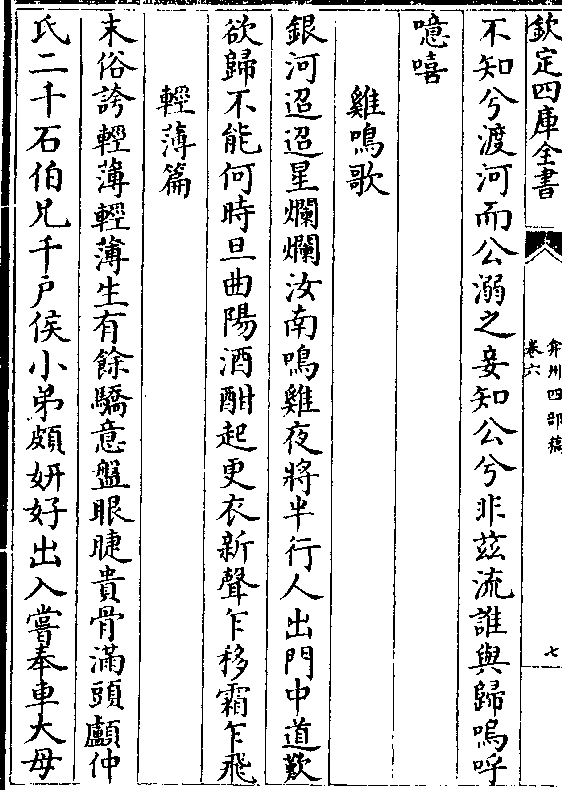 欽定四庫全書
弇州四部稿
卷六
七
不知兮渡河而公溺之妾知公兮非茲流誰與歸嗚呼
噫嘻
雞鳴歌
銀河迢迢星爛爛汝南鳴雞夜將半行人出門中道歎
欲歸不能何時旦曲陽酒酣起更衣新聲乍移霜乍飛
輕薄篇
末俗誇輕薄輕薄生有餘驕意盤眼睫貴骨滿頭顱仲
氏二千石伯兄千戶侯小弟頗妍好出入嘗奉車大母